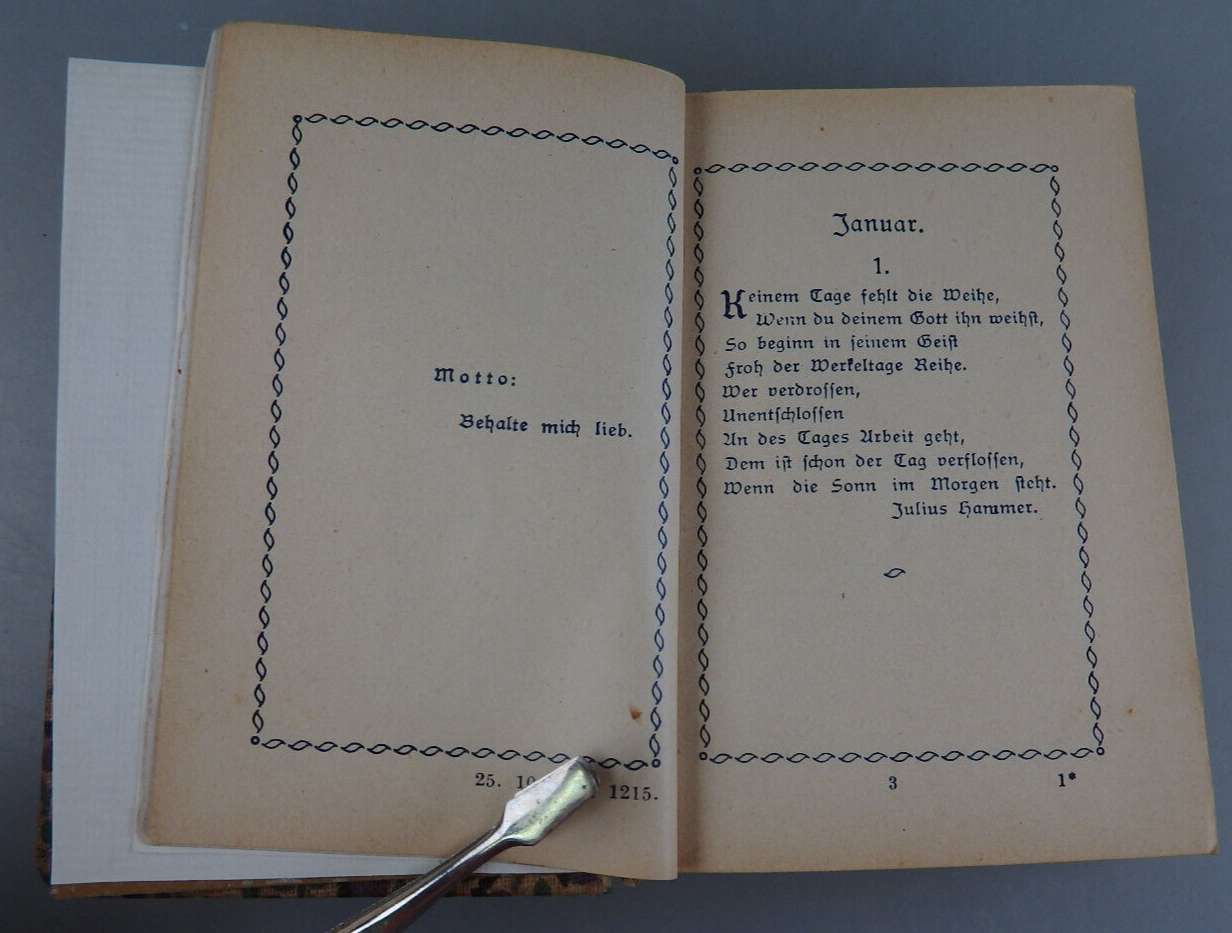 Motto:
Behalte mich lieb.
25. 10 1215.
Januar.
1.
Keinem Tage fehlt die Weihe,
Wenn du deinem Gott ihn weihst,
So beginn in seinem Geist
Froh der Werkeltage Reihe.
Wer verdrossen,
Unentschlossen
An des Tages Arbeit geht,
Dem ist schon der Tag verflossen,
Wenn die Sonn im Morgen steht.
Julius Hammer.
3 1*